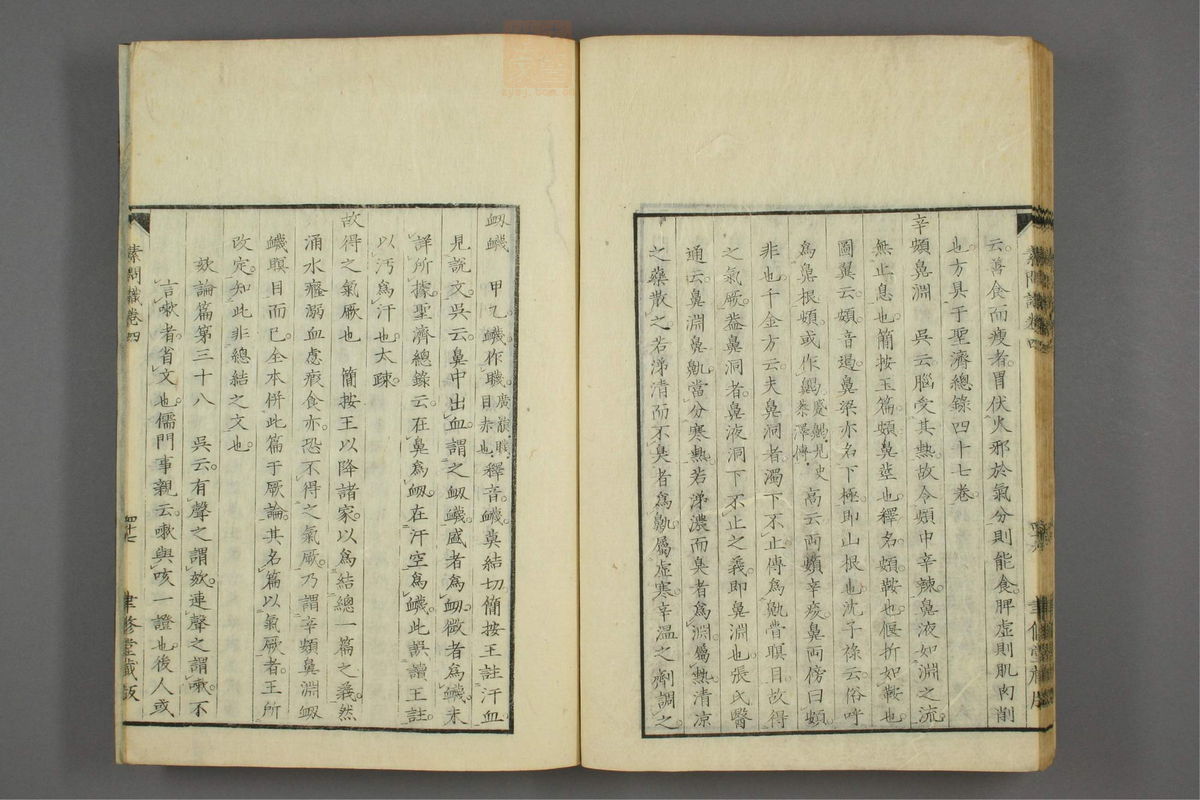 云。善食而瘦者。胃伏火邪於氣分則能食。脾虛則肌肉削
也。方具于聖濟總錄四十七卷。
辛頞鼻淵　吳云。腦受其熱。故令頞中辛辣。鼻液如淵之流。
無止息也。簡按玉篇。頞。鼻莖也。釋名。頞。鞍也。偃折如鞍也。
圖翼云。頞。音遏。鼻梁。亦名下極。即山根也。沈子祿云。俗呼
為鼻根。頞。或作齃。蹙齃。見史蔡澤傳。高云。兩頞辛痠。鼻兩傍曰頞。
非也。千金方云。夫鼻洞者。濁下不止。傳為鼽瞢瞑目。故得
之氣厥。蓋鼻洞者。鼻液洞下不止之義。即鼻淵也。張氏醫
通云。鼻淵鼻鼽。當分寒熱。若涕濃而臭者為淵。屬熱。清凉
之藥散之。若涕清而不臭者為鼽。屬虛寒。辛溫之劑調之。
衂衊　甲乙衊作䁾。廣韻。䁾目赤也。釋音。衊。莫結切。簡按王註汗血。
見說文。吳云。鼻中出血。謂之衂衊。盛者為衂。微者為衊。未
詳所據。聖濟總錄云。在鼻為衂。在汗空為衊。此誤讀王註。
以汚為汗也。太疎。
故得之氣厥也　簡按王以降諸家。以為結總一篇之義。然
涌水癃溺血虙瘕食亦。恐不得之氣厥。乃謂辛頞鼻淵衂
衊瞑目而已。全本併此篇于厥論。其名篇以氣厥者。王所
改定。知此非總結之文也。
欬論篇第三十八　吳云。有聲之謂欬。連聲之謂嗽。不
言嗽者。省文也。儒門事親云。嗽與咳一證也。後人或
素問識卷四
四十七
聿修堂藏版